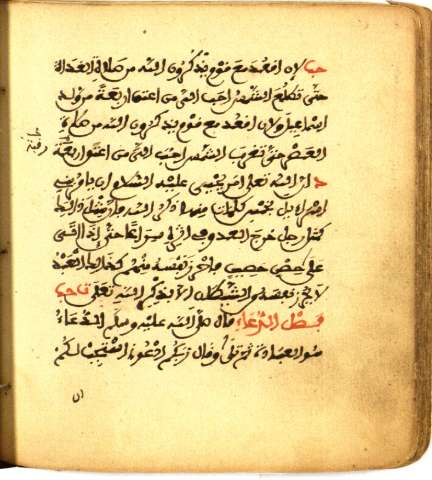 لان افعد مع قوم يذكرون الله من صلاة الغداة
حتى تطلع الشمس احب الي من اعتق اربعة من ولد
اسماعيل ولان افعد مع قوم يذكرون الله من صلاة
العصر حتى تغرب الشمس احب الي من اعتق اربعة
رقبة
ان الله تعلى امر يحيى عليه السلام ان يامر بني
اسراءيل بخمس كلمات منها ذكر الله فان مثل ذلك
كمثل رجل خرج العدو في اثره سراعا حتى اذا اتى
على حصن حصين فاحرز نفسه منهم كذلك العبد
لا يحرز نفسه من الشيطان الا بذكر الله تعلى
فصل الدعاء قال صلى الله عليه وسلم الدعاء
هو العبادة ثم تلى وقال ربكم ادعوني استجب لكم
ان